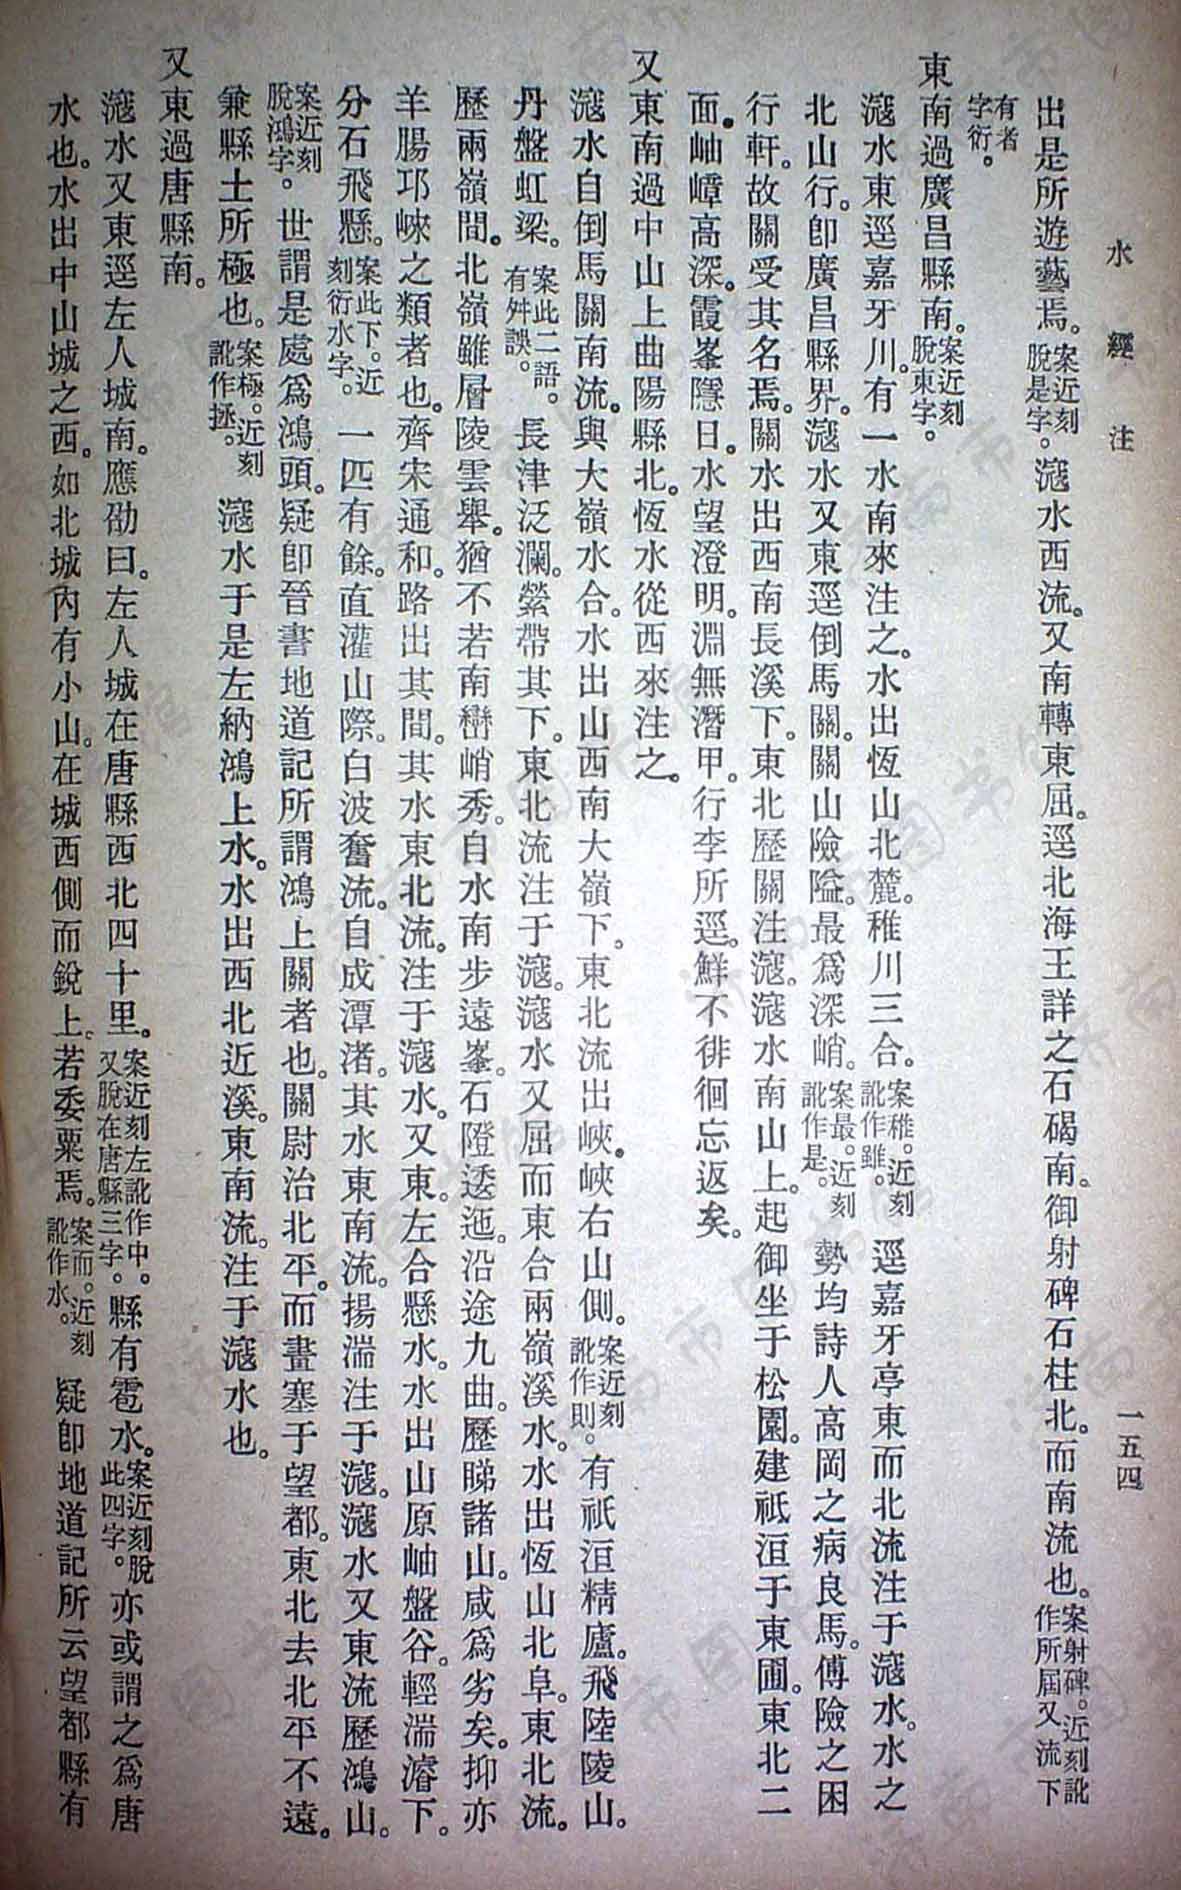 水經注
一五四
出是所遊藝焉。案近刻脫是字。滱水西流。又南轉東屈。逕北海王詳之石碣南。御射碑石柱北。而南流也。案射碑。近刻訛作所屆又流下
有者字衍。
東南過廣昌縣南。案近刻脫東字。
滱水東逕嘉牙川。有一水南來注之。水出恆山北麓。稚川三合。案稚。近刻訛作雖。逕嘉牙亭東而北流注于滱水。水之
北山行。卽廣昌縣界。滱水又東逕倒馬關。關山險隘。最爲深峭。案最。近刻訛作是。勢均詩人高岡之病良馬。傅險之困
行軒。故關受其名焉。關水出西南長溪下。東北歷關注滱。滱水南山上。起御坐于松園。建祇洹于東圃。東北二
面。岫嶂高深。霞峯隱日。水望澄明。淵無潛甲。行李所逕。鮮不徘徊忘返矣。
又東南過中山上曲陽縣北。恆水從西來注之。
滱水自倒馬關南流。與大嶺水合。水出山西南大嶺下。東北流出峽。峽右山側。案近刻訛作則。有祇洹精廬。飛陸陵山。
丹盤虹梁。案此二語。有舛誤。長津泛瀾。縈帶其下。東北流注于滱。滱水又屈而東合兩嶺溪水。水出恆山北阜。東北流。
歷兩嶺間。北嶺雖層陵雲舉。猶不若南巒峭秀。自水南步遠峯。石隥逶迤。沿途九曲。歷睇諸山。咸爲劣矣。抑亦
羊腸邛崍之類者也。齊宋通和。路出其間。其水東北流。注于滱水。又東。左合懸水。水出山原岫盤谷。輕湍濬下。
分石飛懸。案此下。近刻衍水字。一匹有餘。直灌山際。白波奮流。自成潭渚。其水東南流。揚湍注于滱。滱水又東流歷鴻山。
案近刻脫鴻字。世謂是處爲鴻頭。疑卽晉書地道記所謂鴻上關者也。關尉治北平。而畫塞于望都。東北去北平不遠。
兼縣土所極也。案極。近刻訛作拯。滱水于是左納鴻上水。水出西北近溪。東南流。注于滱水也。
又東過唐縣南。
滱水又東逕左人城南。應劭曰。左人城在唐縣西北四十里。案近刻左訛作中。又脫在唐縣三字。縣有雹水。案近刻脫此四字。亦或謂之爲唐
水也。水出中山城之西。如北城內有小山。在城西側而銳上。若委粟焉。案而。近刻訛作水。疑卽地道記所云望都縣有